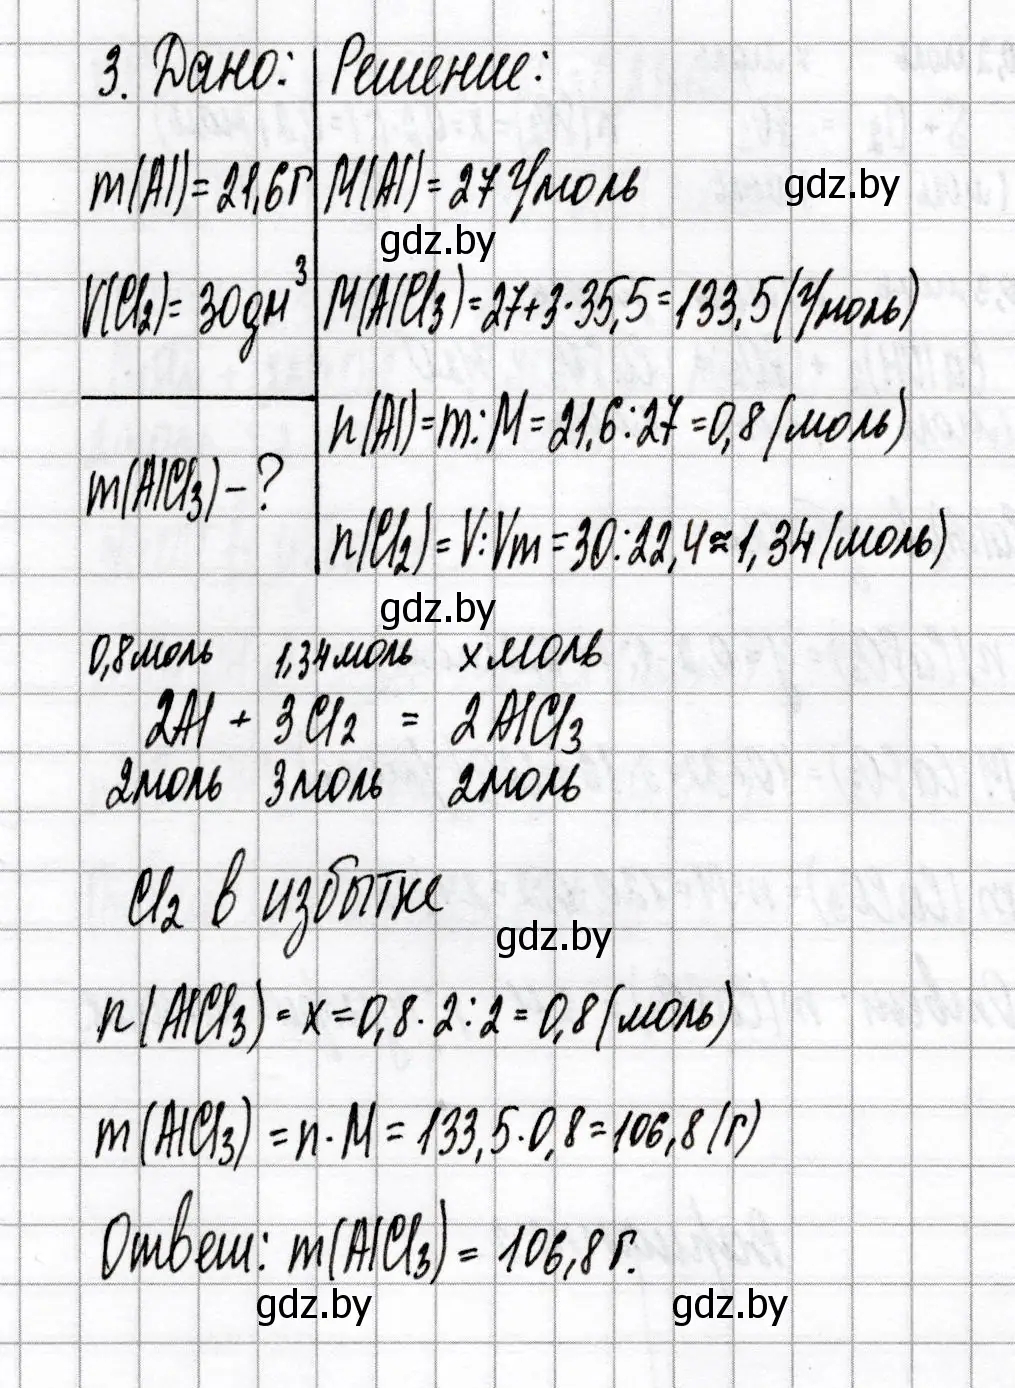 3. Дано: Решение:
m(Al)=21,6г M(Al)=27 г/моль
gdz.by
gdz.by
V(Cl₂)=30дм³ M(AlCl₃)=27+3·35,5=133,5(г/моль)
n(Al)=m:M=21,6:27=0,8(моль)
m(AlCl₃)-?
n(Cl₂)=V:Vm=30:22,4≈1,34(моль)
gdz.by
0,8моль 1,34моль x моль
2Al + 3Cl₂ = 2AlCl₃
2моль 3моль 2моль
Cl₂ в избытке
gdz.by
n(AlCl₃)=x=0,8·2:2=0,8(моль)
m(AlCl₃)=n·M=133,5·0,8=106,8(г)
Ответ: m(AlCl₃)=106,8г.
gdz.by gdz.by